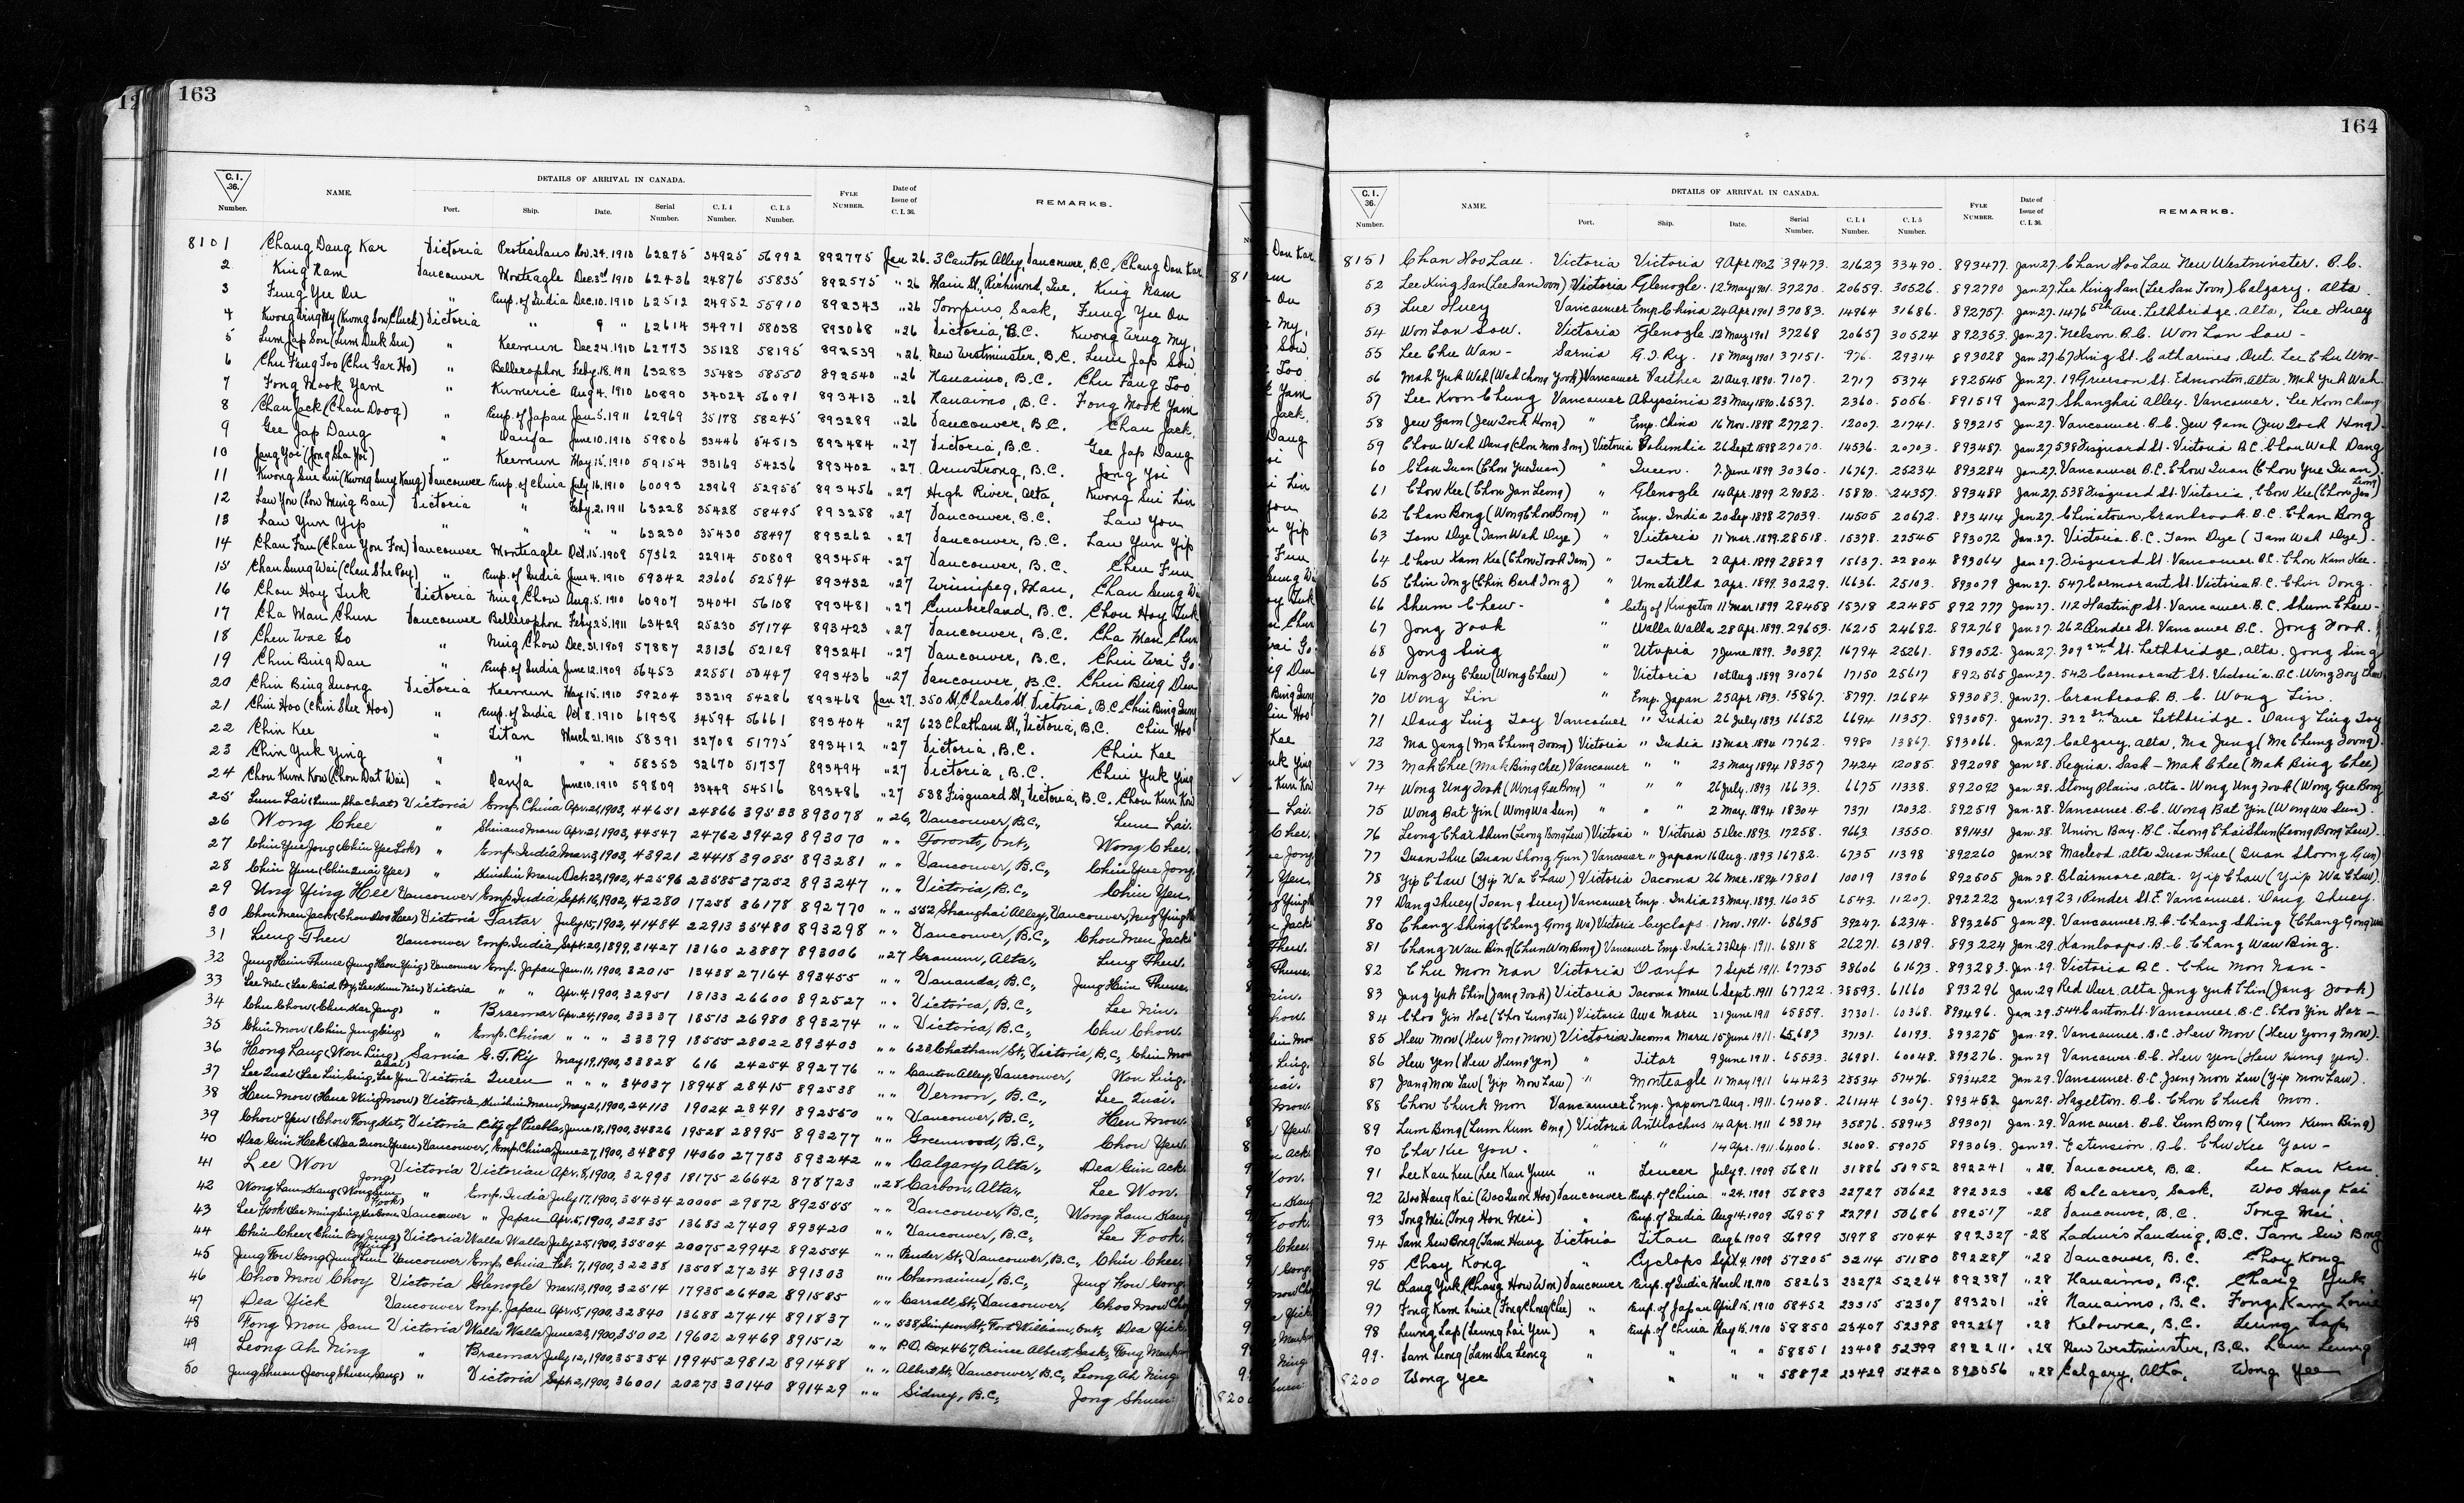 12
163
C.I. 36. Number. NAME. DETAILS OF ARRIVAL IN CANADA. Port. Ship. Date. Serial Number. C.I. 4 Number. C.I. 5 Number. FYLE NUMBER. Date of Issue of C.I. 36. REMARKS.
8101 Chang Dang Kar Victoria Protesilaus Nov. 24. 1910 62275 34925 56992 892775 Jan 26. 3 Canton Alley, Vancouver, B.C. Chang Dan Kar
2 King Nam Vancouver Monteagle Dec. 3rd 1910 62436 24876 55835 892575 " 26 Main St, Richmond, Que, King Nam
3 Fung Yu On " Emp. of India Dec. 10. 1910 62512 24952 55910 892343 " 26 Tompins, Sask, Fung Yu On
4 Victoria " 9 " 62614 34971 58038 893068 " 26 Victoria, B.C.
5 Lum Jap Son (Lum Duk Sun) " Keemun Dec 24. 1910 62773 35128 58195 892539 " 26. New Westminster, B.C. Lum Jap Son
6 Chu Fang Too (Chu Gar Ho) " Bellerophon Feby. 18. 1911 63283 35483 58550 892540 " 26 Nanaimo, B.C. Chu Fang Too
7 Fong Mook Yam " Kumeric Aug 4. 1910 60890 34024 56091 893413 " 26 Nanaimo, B.C. Fong Mook Yam
8 Chan Jack (Chan Doog) " Emp. of Japan Jan. 5. 1911 62969 35178 58245 893289 " 26 Vancouver, B.C. Chan Jack
9 Gee Jap Dang " Oanfa June 10. 1910 59806 33446 54513 893484 " 27 Victoria, B.C. Gee Jap Dang
10 Jong Yoi (Jong Sha Yoi) " Keemun May 15. 1910 59154 33169 54236 893402 " 27. Armstrong, B.C. Jong Yoi
11 Kwong Sue Lin (Kwong Suey Kang) Vancouver Emp. of China July 16. 1910 60093 23969 52955 893456 " 27 High River, Alta, Kwong Sui Lin
12 Law You (Low Ming Bau) Victoria " Feby. 2. 1911 63228 35428 58495 893258 " 27 Vancouver, B.C. Law You
13 Law Yun Yip " " " 63230 35430 58497 893262 " 27 Vancouver, B.C. Law Yun Yip
14 Chan Fun (Chan You Fon) Vancouver Monteagle Oct. 15. 1909 57362 22914 50809 893454 " 27 Vancouver, B.C. Chan Fun
15 Chan Sung Wai (Chan She Poy) " Emp. of India June 4. 1910 59342 23606 52594 893432 " 27 Winnipeg, Man, Chan Sung Wa
16 Chou Hoy Tuk Victoria Ning Chow Aug. 5. 1910 60907 34041 56108 893481 " 27 Cumberland, B.C. Chou Hoy Tuk
17 Cha Man Chun Vancouver Bellerophon Feby 25. 1911 63429 25230 57174 893423 " 27 Vancouver, B.C. Cha Man Chun
18 Chen Wae Go " Ning Chow Dec. 31. 1909 57887 23136 52129 893241 " 27 Vancouver, B.C. Chin Wai Go
19 Chin Bing Dau " Emp. of India June 12. 1909 56453 22551 50447 893436 " 27 Vancouver, B.C. Chin Bing Deu
20 Chin Bing Quong Victoria Keemun May 15. 1910 59204 33219 54286 893468 Jan 27. 350 St. Charles St, Victoria, B.C. Chin Bing Qung
21 Chin Hoo (Chin Sher Hoo) " Emp. of India Oct 8. 1910 61938 34594 56661 893404 " 27 623 Chatham St, Victoria, B.C. Chin Hoo
22 Chin Kee " Titan March 21. 1910 58391 32708 51775 893412 " 27 Victoria, B.C. Chin Kee
23 Chin Yuk Ying " " " " 58353 32670 51737 893494 " 27 Victoria, B.C. Chin Yuk Ying
24 Chou Kum Kow (Chou Dat Wai) " Oanfa June 10. 1910 59809 33449 54516 893486 " 27 538 Fisguard St, Victoria, B.C. Chou Kun Kow
25 Lum Lai (Lum Sha Chat) Victoria Emp. China Apr. 21, 1903, 44651 24866 39533 893078 " 26, Vancouver, B.C., Lum Lai.
26 Wong Chee " Shinano Maru Apr. 21, 1903, 44547 24762 39429 893070 " " Toronto, Ont., Wong Chee.
27 Chin Yee Jong (Chin Yee Lok) " Emp. India Mar. 3, 1903, 43921 24418 39085 893281 " " Vancouver, B.C., Chin Yee Jong.
28 Chin Yum (Chin Quai Yee) " Kinshiu Maru Oct. 22, 1902, 42596 23585 37252 893247 " " Victoria, B.C., Chin Yen.
29 Ung Ying Hee Vancouver Emp. India, Sept. 16, 1902, 42280 17258 36178 892770 " " 552 Shanghai Alley, Vancouver,
30 Chou Men Jack (Chou Doo Hee) Victoria Tartar July 15, 1902, 41484 22913 35480 893298 " " Vancouver, B.C., Chou Men Jack.
31 Lung Then Vancouver Emp. India, Sept. 20, 1899, 31427 13160 23887 893006 " 27 Granum, Alta., Lung Then.
32 Jung Hein Thune Vancouver Emp. Japan Jan. 11, 1900, 32015 13438 27164 893455 " " Vananda, B.C., Jung Hein Thune.
33 Lee Nin Victoria " " Apr. 4, 1900, 32951 18133 26600 892527 " " Victoria, B.C., Lee Nin.
34 Chu Chow (Chu Kar Jang) " Braemar Apr. 24, 1900, 33337 18513 26980 893274 " " Victoria, B.C., Chu Chow.
35 Chin Mow (Chin Jung Sing) " Emp. China " " " 33379 18555 28022 893403 " " 623 Chatham St, Victoria, B.C., Chin Mow
36 Hong Lang (Won Ling) Sarnia G.T. Ry May 19, 1900, 33828 616 24254 892776 " " Canton Alley, Vancouver, Won Ling.
37 Lee Quai Victoria Queen " " " 34037 18948 28415 892538 " " Vernon, B.C., Lee Quai.
38 Hem Mow (Hem Wing Mow) Victoria Kinshiu Maru, May 21, 1900, 24113 19024 28491 892550 " " Vancouver, B.C., Hem Mow.
39 Chow Yen (Chow Fong Kat, Victoria City of Puebla, June 18, 1900, 34826 19528 28995 893277 " " Greenwood, B.C., Chow Yen.
40 Dea Gin Hack Vancouver, Emp. China June 27, 1900, 34889 14060 27783 893242 " " Calgary, Alta., Dea Gin ack.
41 Lee Won Victoria Victorian Apr. 8, 1900, 32993 18175 26642 878723 " 28 Carbon, Alta., Lee Won.
42 " Emp. India July 17, 1900, 35434 20005 29872 892555 " " Vancouver, B.C., Wong Lam Kang
43 Lee Fook Vancouver " Japan Apr. 5, 1900, 32835 13683 27409 893420 " " Vancouver, B.C., Lee Fook.
44 Chin Chee Victoria Walla Walla July 25, 1900, 35504 20075 29942 892554 " " Pender St, Vancouver, B.C., Chin Chee.
45 Jung Fou Gong Vancouver Emp. China Feb. 7, 1900, 32238 13508 27234 891303 " " Chemainus, B.C., Jung Fou Gong.
46 Choo Mow Choy Victoria Glenogle Mar. 13, 1900, 32514 17935 26402 891585 " " Carrall St, Vancouver, Choo Mow Cho
47 Dea Yick Vancouver Emp. Japan Apr. 15, 1900, 32840 13688 27414 891837 " " 538 Simpson St, Fort William, Ont., Dea Yick.
48 Fong Mou Sam Victoria Walla Walla June 23, 1900, 35002 19602 29469 891512 " " P.O. Box 467, Prince Albert, Sask.,
49 Leong Ah Ning " Braemar July 12, 1900, 35354 19945 29812 891488 " " Albert St, Vancouver, B.C., Leong Ah Ning.
50 Jung Shuen (Jeong Shuen Sang) " Victoria Sept. 2, 1900, 36001 20273 30140 891429 " " Sidney, B.C., Jong Shuen
164
C.I. 36. Number. NAME. DETAILS OF ARRIVAL IN CANADA. Port. Ship. Date. Serial Number. C.I. 4 Number. C.I. 5 Number. FYLE NUMBER. Date of Issue of C.I. 36. REMARKS.
8151 Chan Hoo Lau. Victoria Victoria 9 Apr 1902 39473. 21623 33490. 893477. Jan 27. Chan Hoo Lau New Westminster. B.C.
52 Lee King San (Lee San Toon) Victoria Glenogle. 12 May 1901. 37270. 20659. 30526. 892790 Jan 27. Lee King San (Lee San Toon) Calgary. Alta.
53 Lue Huey Vancouver Emp. China 24 Apr 1901 37083. 14964 31686. 892757. Jan 27. 1476 5th Ave. Lethbridge. Alta, Lue Huey
54 Won Lan Sow. Victoria Glenogle 12 May 1901 37268 20657 30524 892353. Jan 27. Nelson B.C. Won Lan Sow -
55 Lee Chu Wan - Sarnia G.T. Ry. 18 May 1901 37151. 976. 29314 893028 Jan 27. 67 King St. Catharines, Ont. Lee Chu Won -
56 Mah Yuk Wah (Wah Chong Yook) Vancouver Parthia 21 Aug. 1890. 7107. 2717 5374 892545 Jan 27. 19 Grierson St. Edmonton, Alta. Mah Yuk Wah.
57 Lee Koon Chung Vancouver Abyssinia 23 May 1890. 6537. 2360. 5056. 891519 Jan 27. Shanghai Alley. Vancouver. Lee Koon Chung
58 Jew Gam (Jew Dock Hong) " Emp. China 16 Nov. 1898 27727. 12007. 21741. 893215 Jan 27. Vancouver. B.C. Jew Gam (Jew Dock Hong).
59 Chou Wah Dang (Chou Mon Son) Victoria Columbia 26 Sept. 1898 27070. 14536. 20703. 893487. Jan 27. 538 Fisguard St. Victoria B.C. Chou Wah Dang
60 Chou Quan (Chou Yue Quan) " Queen. 7 June 1899 30360. 16767. 25234 893284 Jan 27. Vancouver B.C. Chow Quan (Chow Yue Quan).
61 Chow Kee (Chou Jan Leong) " Glenogle 14 Apr. 1899 29082. 15890. 24357. 893458 Jan 27. 538 Fisguard St. Victoria, Chow Kee (Chow Jan Leong)
62 Chan Bong (Wong Chou Bong) " Emp. India 20 Sep. 1898 27039. 14505 20672. 893414 Jan 27. Chinatown Cranbrook. B.C. Chan Bong
63 Tam Dye (Tam Wah Dye) " Victoria 11 Mar. 1899. 28518. 15378. 22545 893072 Jan. 27. Victoria. B.C. Tam Dye (Tam Wah Dye).
64 Chow Kam Kee (Chow Took Tam) " Tartar 2 Apr. 1899 28829 15637. 22804 893064 Jan 27. Fisguard St. Vancouver B.C. Chou Kam Kee.
65 Chin Tong (Chin Bark Tong) " Umatilla 2 Apr. 1899. 30229. 16636. 25103. 893079 Jan 27. 547 Cormorant St. Victoria B.C. Chin Tong.
66 Shum Chew - " City of Kingston 11 Mar 1899 28458 15318 22485 892777 Jan 27. 112 Hastings St. Vancouver. B.C. Shum Chew -
67 Jong Fook " Walla Walla 28 Apr. 1899. 29653. 16215 24682. 892768 Jan 27. 262 Pender St. Vancouver B.C. Jong Fook.
68 Jong Sing " Utopia 7 June 1899. 30387. 16794 25261. 893052. Jan 27. 309 2nd St. Lethbridge, Alta. Jong Sing
69 Wong Foy Chew (Wong Chew) " Victoria 10 Aug. 1899 31076 17150 25617 892565 Jan 27. 542 Cormorant St. Victoria. B.C. Wong Foy Chew
70 Wong Lin " Emp. Japan 25 Apr. 1893. 15867. 8797. 12684 893083. Jan 27. Cranbrook B.C. Wong Lin.
71 Dang Ling Toy Vancouver " India 26 July 1893 16652 6694 11357. 893057. Jan 27. 322 Ave Lethbridge - Dang Ling Toy
72 Ma Jung (Ma Chung Toong) Victoria " India 13 Mar. 1894 17762. 9980 13867. 893066. Jan 27. Calgary, Alta, Ma Jung (Ma Chung Toong).
73 Mak Chee (Mak Bing Chee) Vancouver " " 23 May 1894 18357 7424 12085 892098 Jan 28. Regina. Sask - Mak Chee (Mak Bing Chee)
74 Wong Ung Fook (Wong Gee Bong) " " " 26 July. 1893 16633. 6675 11338. 892092 Jan. 28. Stony Plains. Alta - Wong Ung Fook (Wong Gee Bong
75 Wong Bat Yin (Wong Wa Sun) " " " 2 May. 1894 18304 7371 12032. 892519 Jan 28. Vancouver. B.C. Wong Bat Yin (Wong Wa Sun).
76 Leong Char Shun (Leong Bong Lew) Victoria " Victoria 5 Dec. 1893. 17258. 9663. 13550. 891431 Jan. 28. Union Bay. B.C. Leong Chai Shun (Leong Bong Lew).
77 Quan Thue (Quan Shong Gun) Vancouver " Japan 16 Aug. 1893 16782. 6735 11398 892260 Jan. 28 Macleod. Alta Quan Thue (Quan Shoong Gun)
78 Yip Chaw (Yip Wa Chaw) Victoria Tacoma 26 Mar. 1894 17801 10019 13906 892505 Jan 28. Blairmore, Alta. Yip Chaw (Yip Wa Chaw).
79 Dang Shuey (Toang Suey) Vancouver Emp. India 23 May. 1893. 16025 6543. 11207. 892222 Jan. 29 231 Pender St. E Vancouver. Dang Shuey.
80 Chang Shing (Chang Gong Wo) Victoria Cyclops 1 Nov. 1911. 68635 39247. 62314. 893265 Jan 29. Vancouver. B.C. Chang Shing (Chang Gong Wo
81 Chang Wau Bing (Chun Won Bong) Vancouver Emp. India 23 Sep. 1911. 68118 26271. 63189. 893224 Jan 29. Kamloops. B.C. Chang Wau Bing.
82 Chu Mon Nan Victoria Oanfa 7 Sept 1911. 67735 38606 61673. 893283. Jan. 29. Victoria B.C. Chu Mon Nan -
83 Jang Yuk Chin (Jang Fook) Victoria Tacoma Maru 6 Sept. 1911 67722. 38593. 61660 893296 Jan 29 Red Deer. Alta. Jang Yuk Chin (Jang Fook)
84 Choo Yin Hoe (Choo Lung Tai) Victoria Awa Maru 21 June 1911 65859. 37301. 60368. 893496. Jan. 29. 544 Canton St. Vancouver. B.C. Choo Yin Har -
85 Hew Mow (Hew Yong Mow) Victoria Tacoma Maru 15 June 1911. 65.683 37131. 60193. 893275 Jan. 29. Vancouver. B.C. Hew Mow (Hew Yong Mow).
86 Hew Yen (Hew Hung Yen) " Titan 9 June 1911. 65533. 36981. 60048. 893276. Jan 29 Vancouver. B.C. Hew Yen (Hew Hung Yen).
87 Jang Mon Law (Yip Mow Law) " Monteagle 11 May 1911 64423 25534 57476. 893422 Jan 29. Vancouver. B.C. Jang Mon Law (Yip Mow Law).
88 Chon Chuck Mon Vancouver Emp. Japan 12 Aug. 1911. 67408. 26144 63067. 893452 Jan 29. Hazelton. B.C. Chon Chuck Mon.
89 Lum Bong (Lum Kum Bing) Victoria Antilochus 14 Apr. 1911 63874 35876. 58943 893071 Jan. 29. Vancouver. B.C. Lum Bong (Lum Kum Bing)
90 Chu Kee You. " " 14 Apr. 1911. 64006. 36008. 59075 893063. Jan 29. Extension. B.C. Chu Kee You -
91 Lee Kau Keu (Lee Kau Yum " Teucer July 9. 1909 56811 31886 50952 892241 " 28. Vancouver, B.C. Lee Kau Keu
92 Woo Hang Kai (Woo Quon Hoo) Vancouver Emp. of China " 24. 1909 56883 22727 50622 892323 " 28 Balcarres, Sask. Woo Hang Kai
93 Tong Mei (Tong Hon Mei) " Emp. of India Aug 14. 1909 56959 22791 50686 892517 " 28 Vancouver, B.C. Tong Mei
94 Tam Sew Bong (Tam Hung Victoria Titan Aug 6. 1909 56999 31978 51044 892327 " 28 Ladner's Landing, B.C. Tam Sew Bong
95 Choy Kong " Cyclops Sept. 4. 1909 57205 32114 51180 892287 " 28 Vancouver, B.C. Choy Kong
96 Chang Yuk (Chang How Won) Vancouver Emp. of India March 12. 1910 58263 23272 52264 892387 " 28 Nanaimo, B.C. Chang Yuk
97 Fong Kam Louie (Fong Chong Lee) " Emp. of Japan April 15. 1910 58452 23315 52307 893201 " 28 Nanaimo, B.C. Fong Kam Louie
98 Leung Lap (Leung Lai Yeu) " Emp. of China May 15. 1910 58850 23407 52398 892267 " 28 Kelowna, B.C. Leung Lap
99. Lam Leong (Lam Sha Leong " " " " 58851 23408 52399 892211. " 28 New Westminster, B.C. Lam Leung
8200 Wong Yee " " " " 58872 23429 52420 893056 " 28 Calgary, Alta, Wong Yee